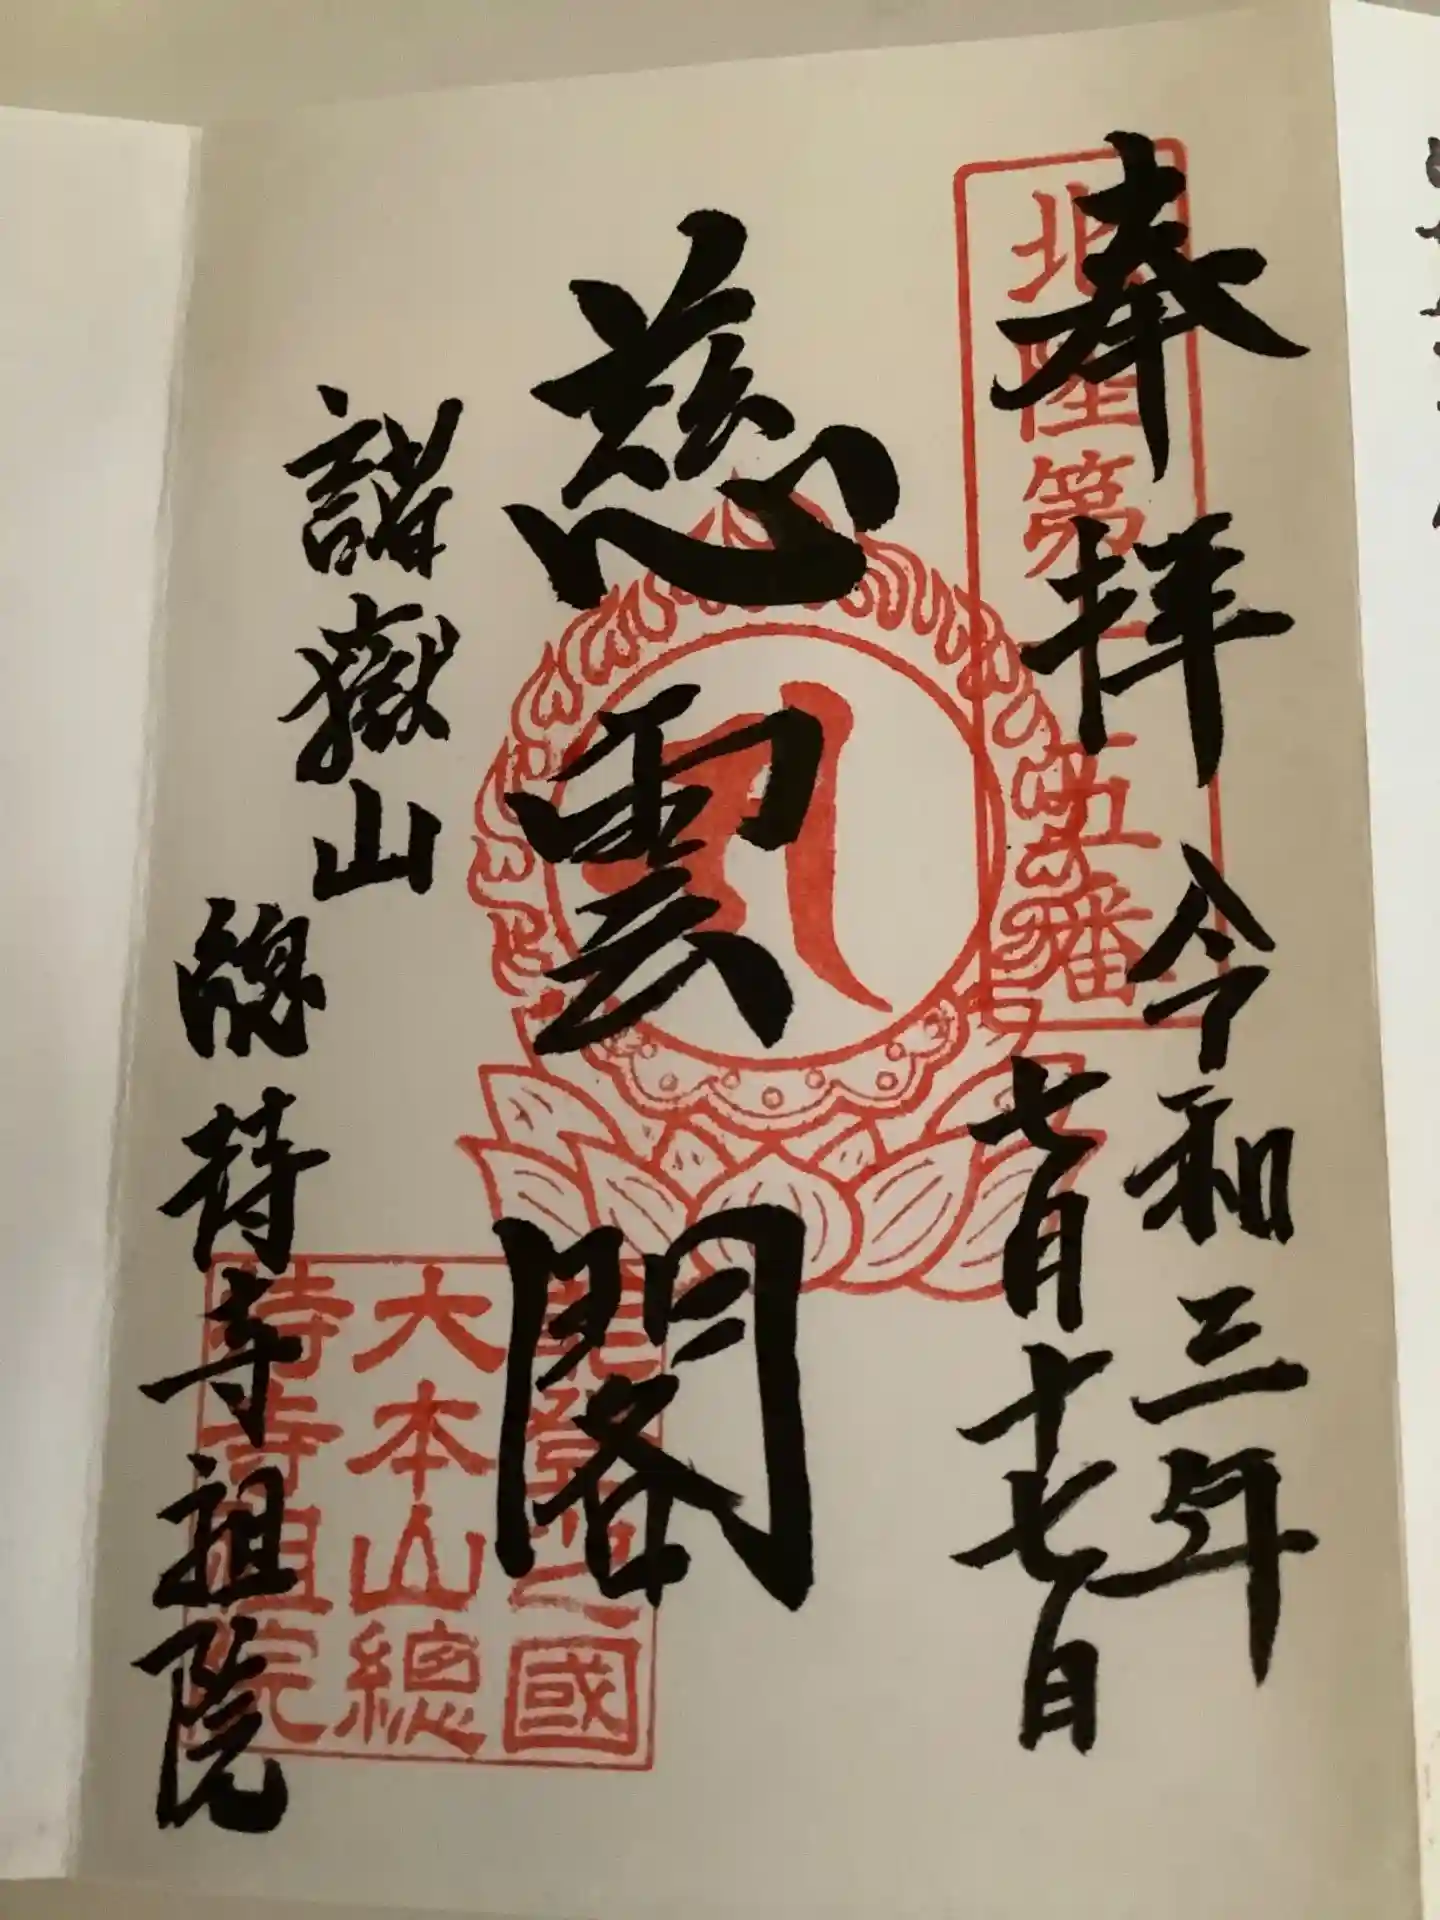 奉拝
令和三年
七月十七日
慈雲閣
諸嶽山
總持寺祖院
北陸第十五番
能登一國
大本山總
持寺祖院